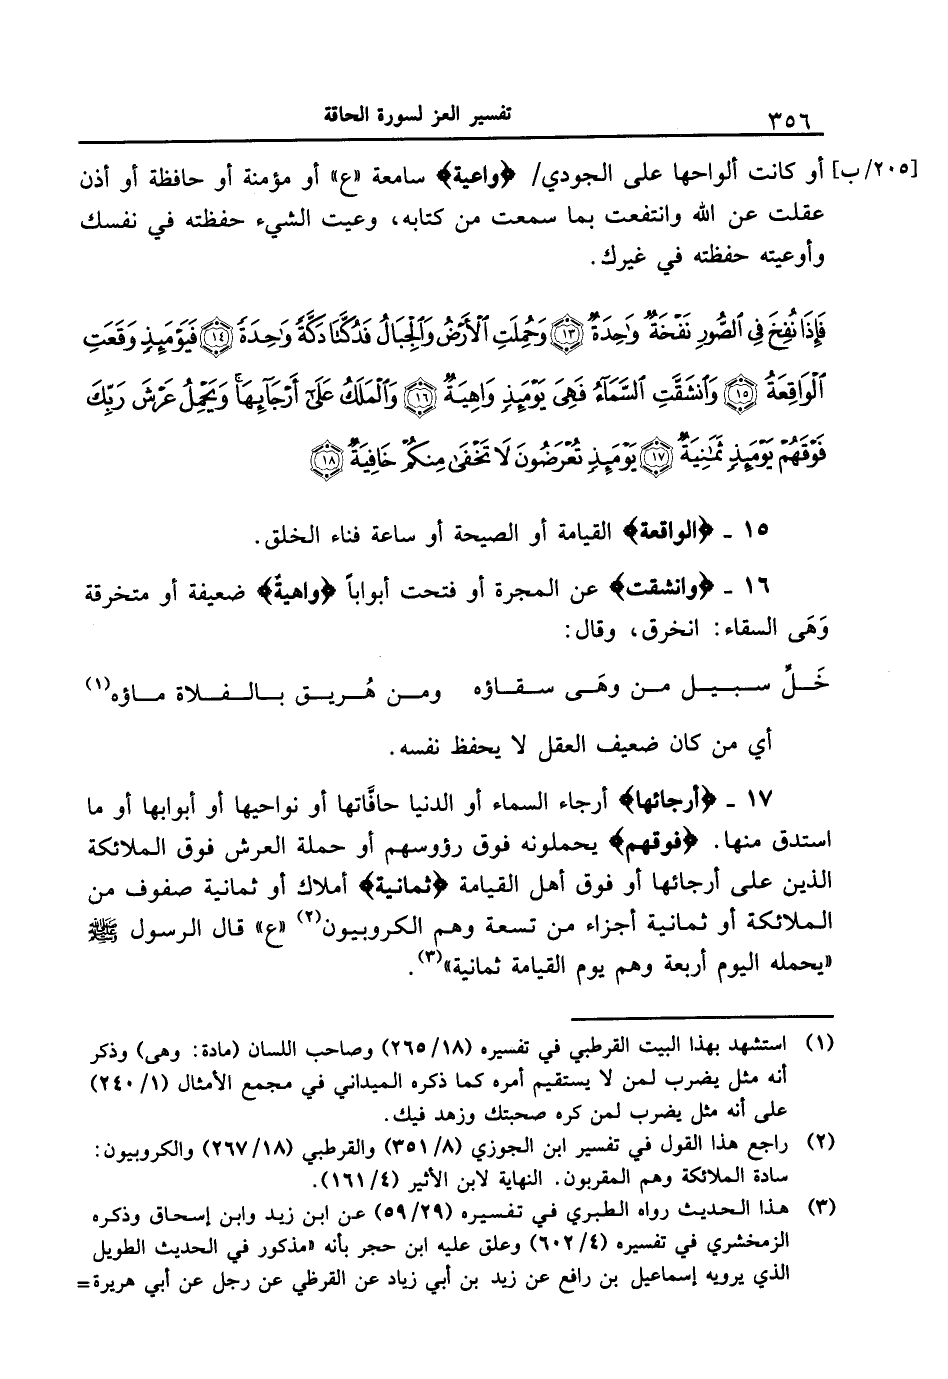 ٣٥٦ تفسير العز لسورة الحاقة
[٢٠٥/ب] أو كانت ألواحها على الجودي/ ﴿واعية﴾ سامعة «ع» أو مؤمنة أو حافظة أو أذن
عقلت عن الله وانتفعت بما سمعت من كتابه، وعيت الشيء حفظته في نفسك
وأوعيته حفظته في غيرك.
فَإِذَا نُفِخَ فِي ٱلصُّورِ نَفْخَةٌ وَٰحِدَةٌ ١٣ وَحُمِلَتِ ٱلْأَرْضُ وَٱلْجِبَالُ فَدُكَّتَا دَكَّةً وَٰحِدَةً ١٤ فَيَوْمَئِذٍ وَقَعَتِ
ٱلْوَاقِعَةُ ١٥ وَٱنشَقَّتِ ٱلسَّمَآءُ فَهِيَ يَوْمَئِذٍ وَاهِيَةٌ ١٦ وَٱلْمَلَكُ عَلَىٰٓ أَرْجَآئِهَا ۚ وَيَحْمِلُ عَرْشَ رَبِّكَ
فَوْقَهُمْ يَوْمَئِذٍ ثَمَٰنِيَةٌ ١٧ يَوْمَئِذٍ تُعْرَضُونَ لَا تَخْفَىٰ مِنكُمْ خَافِيَةٌ ١٨
١٥ ـ ﴿الواقعة﴾ القيامة أو الصيحة أو ساعة فناء الخلق.
١٦ ـ ﴿وانشقت﴾ عن المجرة أو فتحت أبواباً ﴿واهيةٌ﴾ ضعيفة أو متخرقة
وَهَى السقاء: انخرق، وقال:
خَـلِّ سبيل من وهَى سقاؤه ومن هُريق بالفلاة ماؤه(١)
أي من كان ضعيف العقل لا يحفظ نفسه.
١٧ ـ ﴿أرجائها﴾ أرجاء السماء أو الدنيا حافَّاتها أو نواحيها أو أبوابها أو ما
استدق منها. ﴿فوقهم﴾ يحملونه فوق رؤوسهم أو حملة العرش فوق الملائكة
الذين على أرجائها أو فوق أهل القيامة ﴿ثمانية﴾ أملاك أو ثمانية صفوف من
الملائكة أو ثمانية أجزاء من تسعة وهم الكروبيون(٢) «ع» قال الرسول ﷺ
«يحمله اليوم أربعة وهم يوم القيامة ثمانية»(٣).
(١) استشهد بهذا البيت القرطبي في تفسيره (٢٦٥/١٨) وصاحب اللسان (مادة: وهى) وذكر
أنه مثل يضرب لمن لا يستقيم أمره كما ذكره الميداني في مجمع الأمثال (٢٤٠/١)
على أنه مثل يضرب لمن كره صحبتك وزهد فيك.
(٢) راجع هذا القول في تفسير ابن الجوزي (٣٥١/٨) والقرطبي (٢٦٧/١٨) والكروبيون:
سادة الملائكة وهم المقربون. النهاية لابن الأثير (١٦١/٤).
(٣) هذا الحديث رواه الطبري في تفسيره (٥٩/٢٩) عن ابن زيد وابن إسحاق وذكره
الزمخشري في تفسيره (٦٠٢/٤) وعلق عليه ابن حجر بأنه «مذكور في الحديث الطويل
الذي يرويه إسماعيل بن رافع عن زيد بن أبي زياد عن القرظي عن رجل عن أبي هريرة=